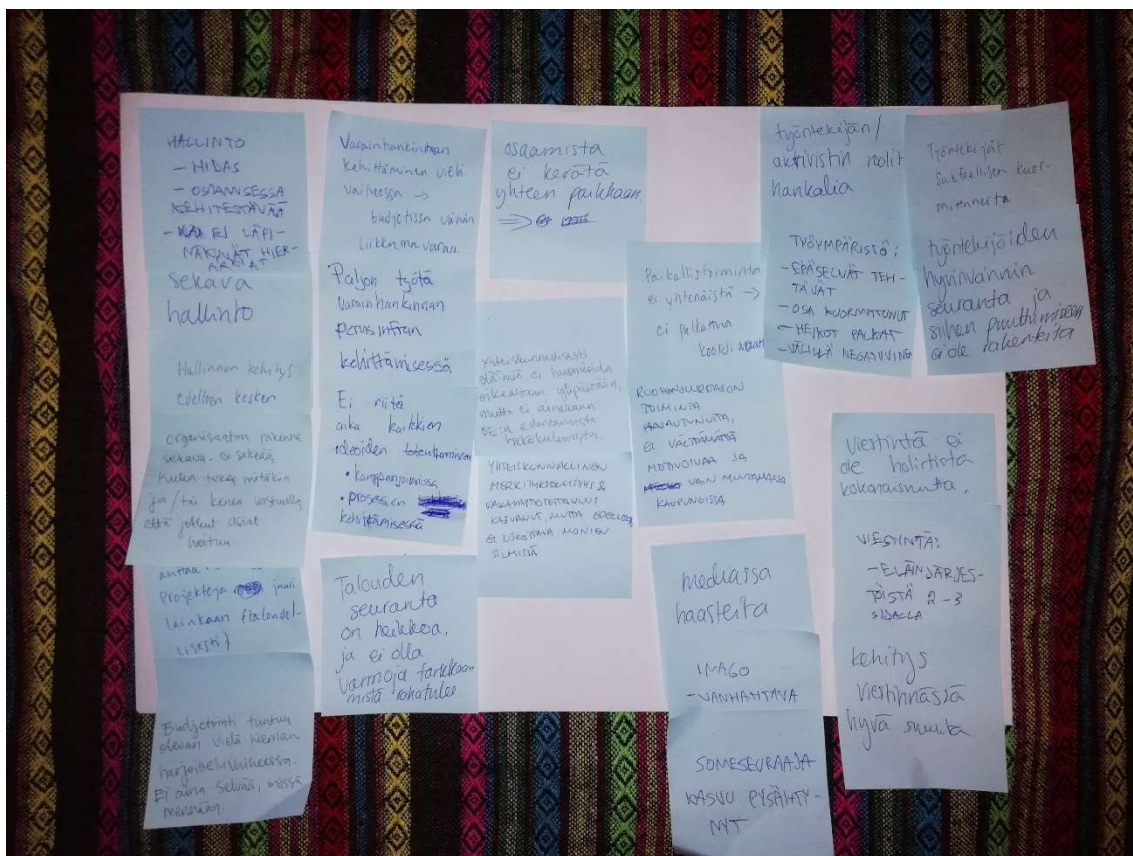 HALLINTO
- HIDAS
- OSAAMISESSA
KEHITETTÄVÄÄ
EI LÄPI-
NÄKYVÄT HIER-
ARKIAT
Sekava
hallinto
Hallinnon kehitys
edelleen kesken
organisaation rakenne
sekava - ei selkeää,
kuka tekee mitäkin
ja/tai kenen vastuulla
että jotkut asiat
hoituu.
projekteja juuri
lainkaan (taloudel-
lisesti)
Budjetointi tuntuu
olevan vielä hieman
harjoitteluvaiheessa.
Ei aina selvää, missä
mennään.
Varainhankinnan
kehittäminen vielä
vaiheessa →
budjetissa vähän
liikkumavaraa
Paljon työtä
varainhankinnan
perusinfran
kehittämisessä
Ei riitä
aika kaikkien
ideoiden toteuttamiseen
• kampanjoinnissa
• prosessien
kehittämisessä
Talouden
seuranta
on heikkoa,
ja ei olla
varmoja tarkkaan
mistä raha tulee.
osaamista
ei kerätä
yhteen paikkaan
yhteiskunnallisesti
eläimiä ei huomioida
oikeastaan ylipäätään,
mutta ei ainakaan
OE:n edustamasta
näkökulmasta.
YHTEISKUNNALLINEN
MERKITYKSELLISYYS &
VAKAVASTIOTETTAVUUS
KASVANUT, MUTTA EDELLEEN
EI USKOTTAVA MONIEN
SILMISSÄ
Paikallistoiminta
ei yhtenäistä →
ei palkattua
RUOHONJUURITASON
TOIMINTA
HAJAUTUNUTTA,
EI VÄLTTÄMÄTTÄ
MOTIVOIVAA JA
VAIN MUUTAMASSA
KAUPUNGISSA
mediassa
haasteita
IMAGO
- VANHAHTAVA
SOMESEURAAJA
KASVU PYSÄHTY-
NYT
työntekijän/
aktivistin roolit
hankalia
TYÖYMPÄRISTÖ:
- EPÄSELVÄT TEH-
TÄVÄT
- OSA KUORMITTUNUT
- HEIKOT PALKAT
- VÄLILLÄ NEGATIIVINEN
Työntekijät
suhteellisen kuor-
mittuneita
työntekijöiden
hyvinvoinnin
seuranta ja
siihen puuttumiseen
ei ole rakenteita
viestintä ei
ole holistista
kokonaisuutta.
VIESTINTÄ:
- ELÄINJÄRJES-
TÖISTÄ 2-3
SIJALLA
kehitys
viestinnässä
hyvä suunta